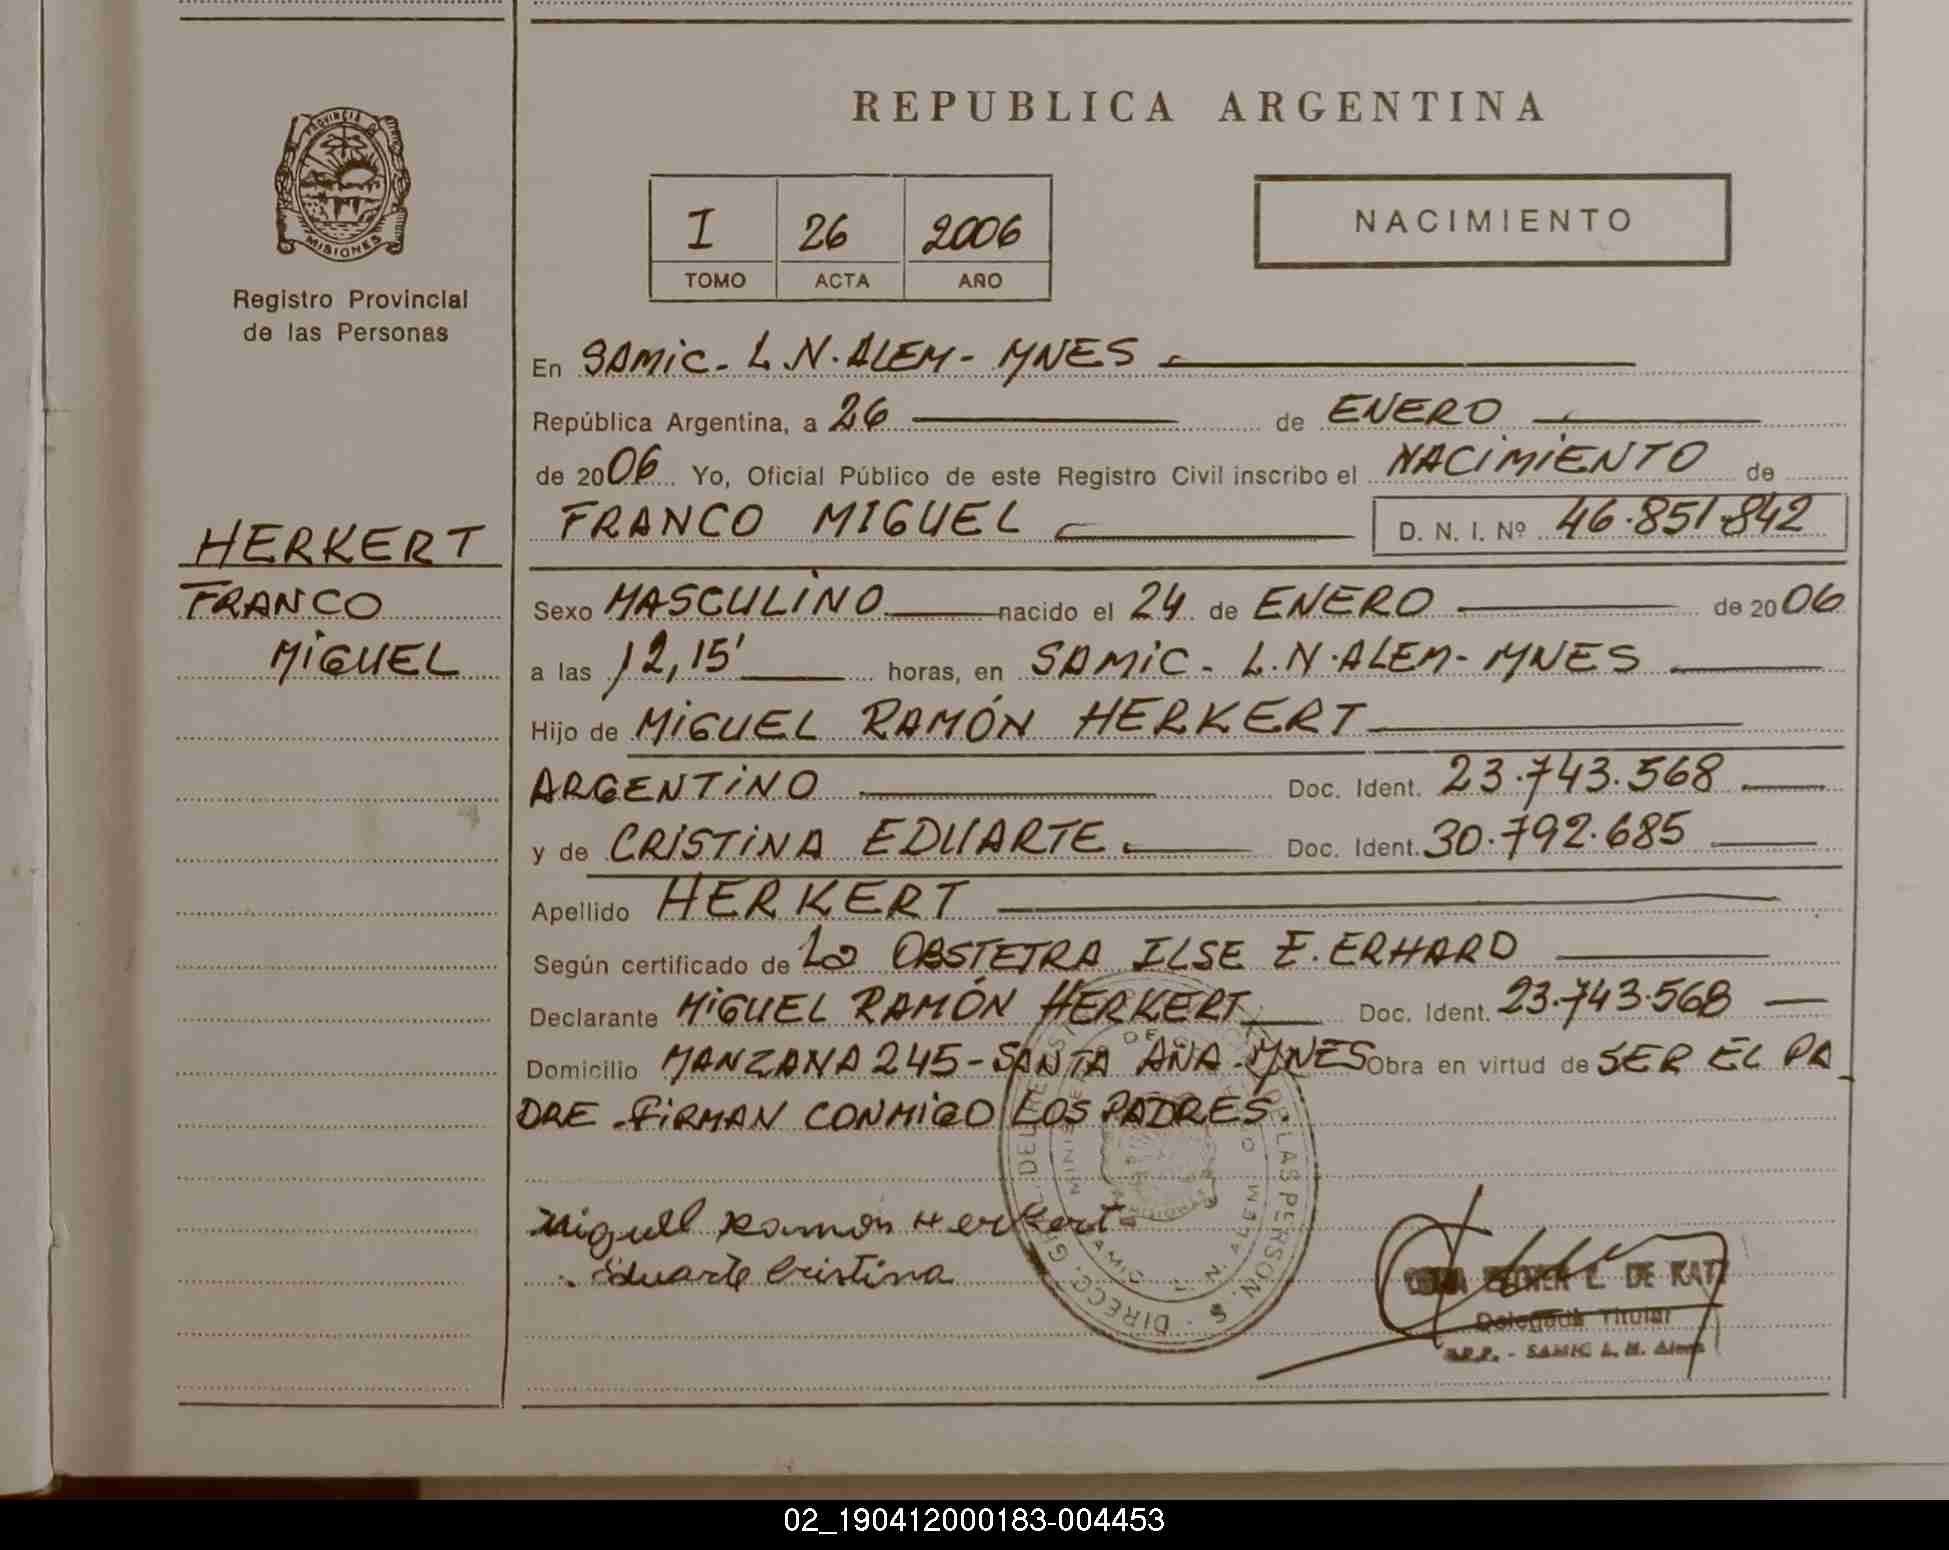 REPUBLICA ARGENTINA
PROVINCIA DE
MISIONES
Registro Provincial
de las Personas
I 26 2006
TOMO ACTA AÑO
NACIMIENTO
En SAMIC- L.N.ALEM- MNES
República Argentina, a 26 de ENERO
de 2006 Yo, Oficial Público de este Registro Civil inscribo el NACIMIENTO de
FRANCO MIGUEL D. N. I. Nº 46.851.842
HERKERT
FRANCO
MIGUEL
Sexo MASCULINO nacido el 24 de ENERO de 2006
a las 12,15' horas, en SAMIC- L.N.ALEM- MNES
Hijo de MIGUEL RAMÓN HERKERT
ARGENTINO Doc. Ident. 23.743.568
y de CRISTINA EDUARTE Doc. Ident. 30.792.685
Apellido HERKERT
Según certificado de La OBSTETRA ILSE E. ERHARD
Declarante MIGUEL RAMÓN HERKERT Doc. Ident. 23.743.568
Domicilio MANZANA 245-SANTA ANA-MNES Obra en virtud de SER EL PA
DRE -FIRMAN CONMIGO LOS PADRES
Miguel Ramón Herkert
Eduarte Cristina
DE KAT
Delegada Titular
R.P.P. - SAMIC L. N. Alem
02_190412000183-004453